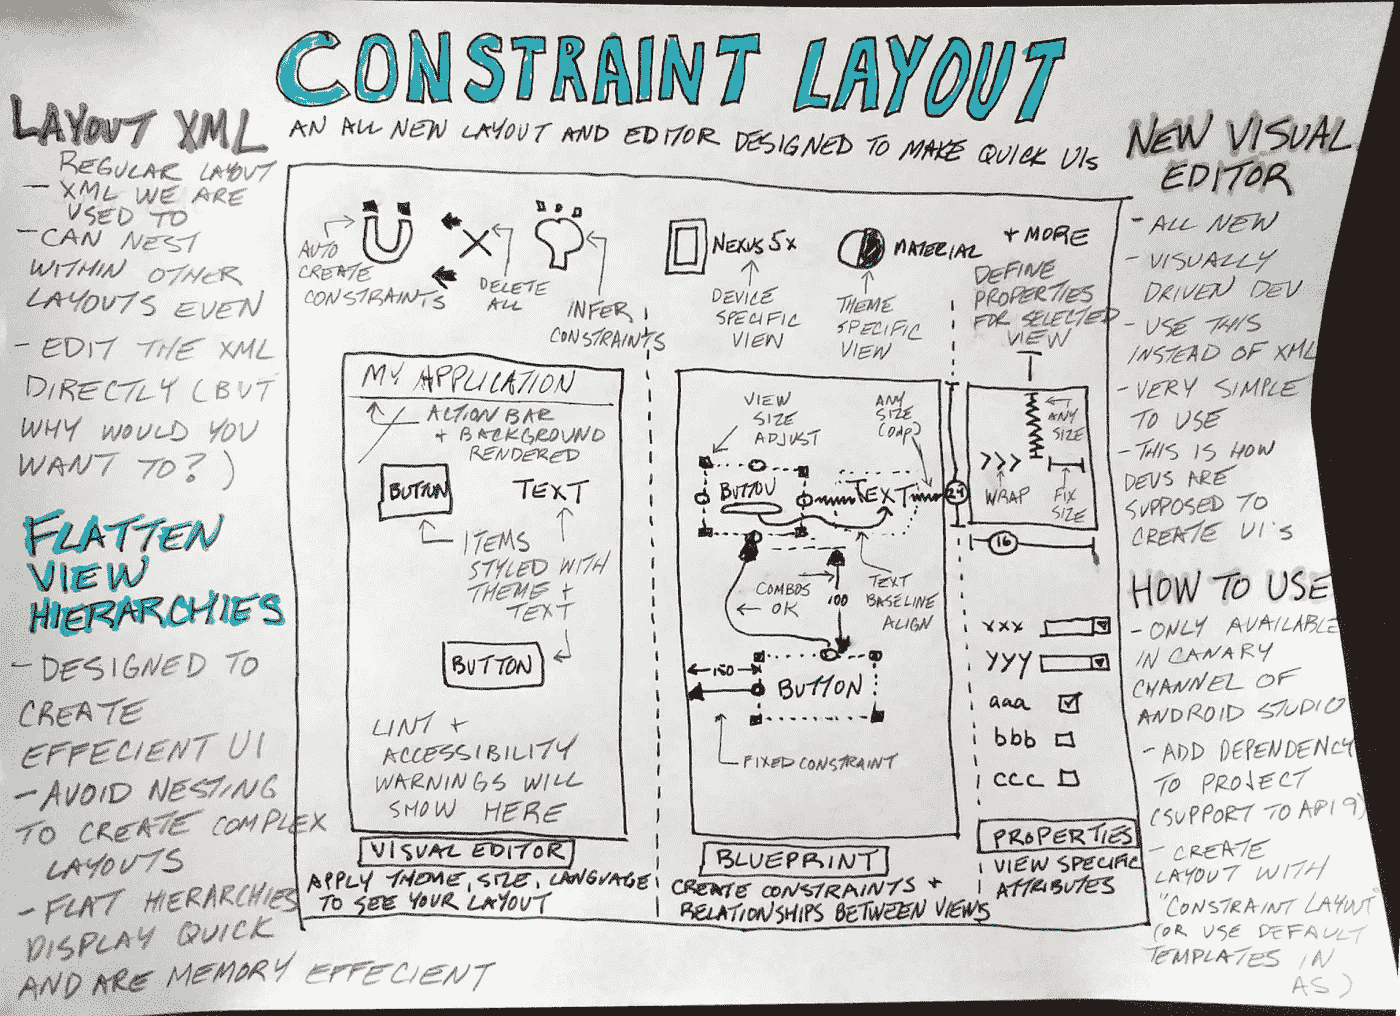 CONSTRAINT LAYOUT
AN ALL NEW LAYOUT AND EDITOR DESIGNED TO MAKE QUICK UIs
LAYOUT XML
REGULAR LAYOUT
- XML WE ARE
USED TO
- CAN NEST
WITHIN OTHER
LAYOUTS EVEN
- EDIT THE XML
DIRECTLY (BUT
WHY WOULD YOU
WANT TO?)
FLATTEN
VIEW
HIERARCHIES
- DESIGNED TO
CREATE
EFFECIENT UI
- AVOID NESTING
TO CREATE COMPLEX
LAYOUTS
- FLAT HIERARCHIES
DISPLAY QUICK
AND ARE MEMORY EFFECIENT
AUTO
CREATE
CONSTRAINTS
DELETE
ALL
INFER
CONSTRAINTS
NEXUS 5x
DEVICE
SPECIFIC
VIEW
MATERIAL
THEME
SPECIFIC
VIEW
+ MORE
DEFINE
PROPERTIES
FOR SELECTED
VIEW
MY APPLICATION
ACTION BAR
+ BACKGROUND
RENDERED
BUTTON
TEXT
ITEMS
STYLED WITH
THEME +
TEXT
BUTTON
LINT +
ACCESSIBILITY
WARNINGS WILL
SHOW HERE
VISUAL EDITOR
APPLY THEME, SIZE, LANGUAGE
TO SEE YOUR LAYOUT
VIEW
SIZE
ADJUST
ANY
SIZE
(0dp)
BUTTON
TEXT
24
COMBOS
OK
100
TEXT
BASELINE
ALIGN
150
BUTTON
FIXED CONSTRAINT
BLUEPRINT
CREATE CONSTRAINTS +
RELATIONSHIPS BETWEEN VIEWS
ANY
SIZE
>>>
WRAP
FIX
SIZE
16
xxx
yyy
aaa
bbb
ccc
PROPERTIES
VIEW SPECIFIC
ATTRIBUTES
NEW VISUAL
EDITOR
- ALL NEW
- VISUALLY
DRIVEN DEV
- USE THIS
INSTEAD OF XML
- VERY SIMPLE
TO USE
- THIS IS HOW
DEVS ARE
SUPPOSED TO
CREATE UI'S
HOW TO USE
- ONLY AVAILABLE
IN CANARY
CHANNEL OF
ANDROID STUDIO
- ADD DEPENDENCY
TO PROJECT
(SUPPORT TO API 9)
- CREATE
LAYOUT WITH
"CONSTRAINT LAYOUT"
(OR USE DEFAULT
TEMPLATES IN
AS)